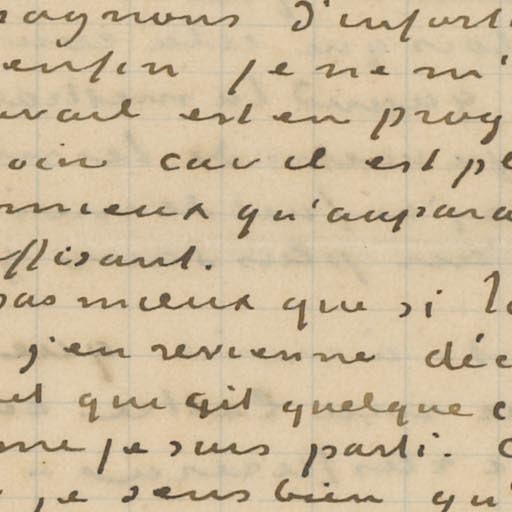 pagnons d'infort
enfin je ne m'
avail est en prog
oin car il est pl
mieux qu'aupara
ffisant.
pas mieux que si l
j'en revienne déc
et qui gît quelque c
me je suis parti.
je sens bien qu'